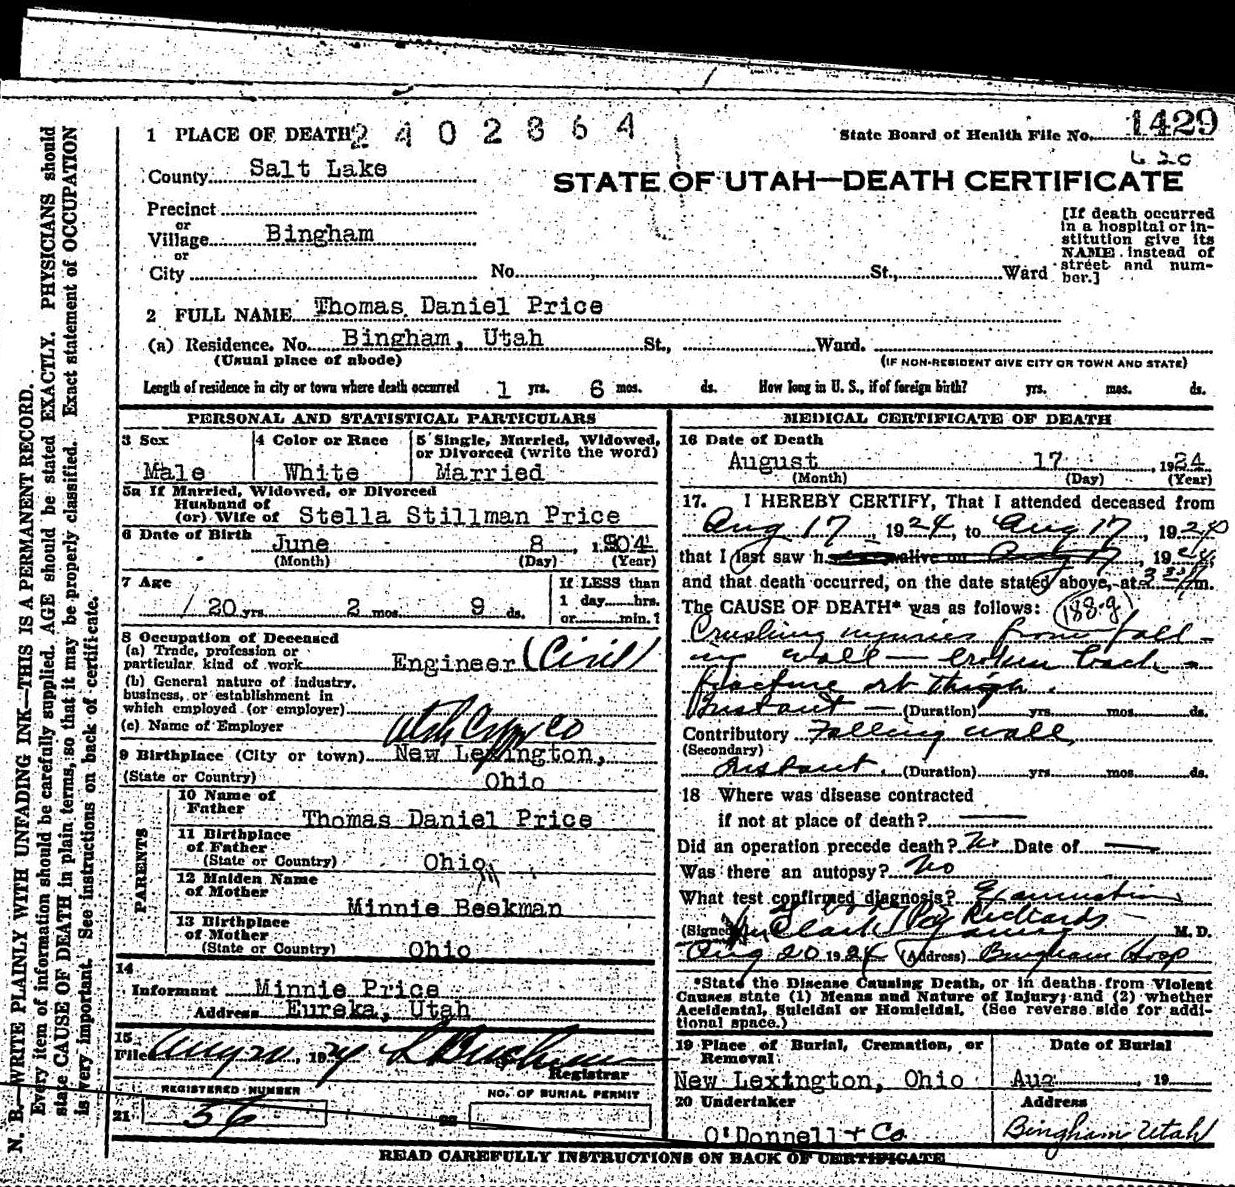 1 PLACE OF DEATH 2402364
State Board of Health File No. 1429
County Salt Lake
STATE OF UTAH—DEATH CERTIFICATE
Precinct
or
Village Bingham
or
City No. St., Ward
[If death occurred
in a hospital or in-
stitution give its
NAME instead of
street and num-
ber.]
2 FULL NAME Thomas Daniel Price
(a) Residence. No. Bingham, Utah St., Ward.
(Usual place of abode) (IF NON-RESIDENT GIVE CITY OR TOWN AND STATE)
Length of residence in city or town where death occurred 1 yrs. 6 mos. ds. How long in U. S., if of foreign birth? yrs. mos. ds.
PERSONAL AND STATISTICAL PARTICULARS
3 Sex
Male
4 Color or Race
White
5 Single, Married, Widowed,
or Divorced (write the word)
Married
5a If Married, Widowed, or Divorced
Husband of
(or) Wife of Stella Stillman Price
6 Date of Birth
June 8, 1904
(Month) (Day) (Year)
7 Age
20 yrs. 2 mos. 9 ds.
If LESS than
1 day hrs.
or min.?
8 Occupation of Deceased
(a) Trade, profession or
particular kind of work Engineer (Civil)
(b) General nature of industry,
business, or establishment in
which employed (or employer)
(c) Name of Employer Utah Copp Co
9 Birthplace (City or town) New Lexington,
(State or Country) Ohio
PARENTS
10 Name of
Father Thomas Daniel Price
11 Birthplace
of Father
(State or Country) Ohio
12 Maiden Name
of Mother
Minnie Beekman
13 Birthplace
of Mother
(State or Country) Ohio
14
Informant Minnie Price
Address Eureka, Utah
15
File Aug 20, 1924
Registrar
REGISTERED NUMBER
21 56
NO. OF BURIAL PERMIT
22
MEDICAL CERTIFICATE OF DEATH
16 Date of Death
August 17, 1924
(Month) (Day) (Year)
17. I HEREBY CERTIFY, That I attended deceased from
Aug 17 1924, to Aug 17, 1924
that I last saw h alive on Aug 17, 1924
and that death occurred, on the date stated above, at m.
The CAUSE OF DEATH* was as follows: 188-g
Crushing injuries from fall-
ing wall — broken back -
fracture rt thigh.
Instant — (Duration) yrs. mos. ds.
Contributory Falling wall,
(Secondary)
Instant. (Duration) yrs. mos. ds.
18 Where was disease contracted
if not at place of death? —
Did an operation precede death? No Date of —
Was there an autopsy? No
What test confirmed diagnosis? Examination
(Signed) Richards M. D.
Aug 20 1924 (Address) Bingham Hosp
*State the Disease Causing Death, or in deaths from Violent
Causes state (1) Means and Nature of Injury; and (2) whether
Accidental, Suicidal or Homicidal. (See reverse side for addi-
tional space.)
19 Place of Burial, Cremation, or
Removal
New Lexington, Ohio
Date of Burial
Aug , 19
20 Undertaker
O'Donnell & Co
Address
Bingham Utah
READ CAREFULLY INSTRUCTIONS ON BACK OF CERTIFICATE
N. B.—WRITE PLAINLY WITH UNFADING INK—THIS IS A PERMANENT RECORD.
Every item of information should be carefully supplied. AGE should be stated EXACTLY. PHYSICIANS should
state CAUSE OF DEATH in plain terms, so that it may be properly classified. Exact statement of OCCUPATION
is very important. See instructions on back of certificate.